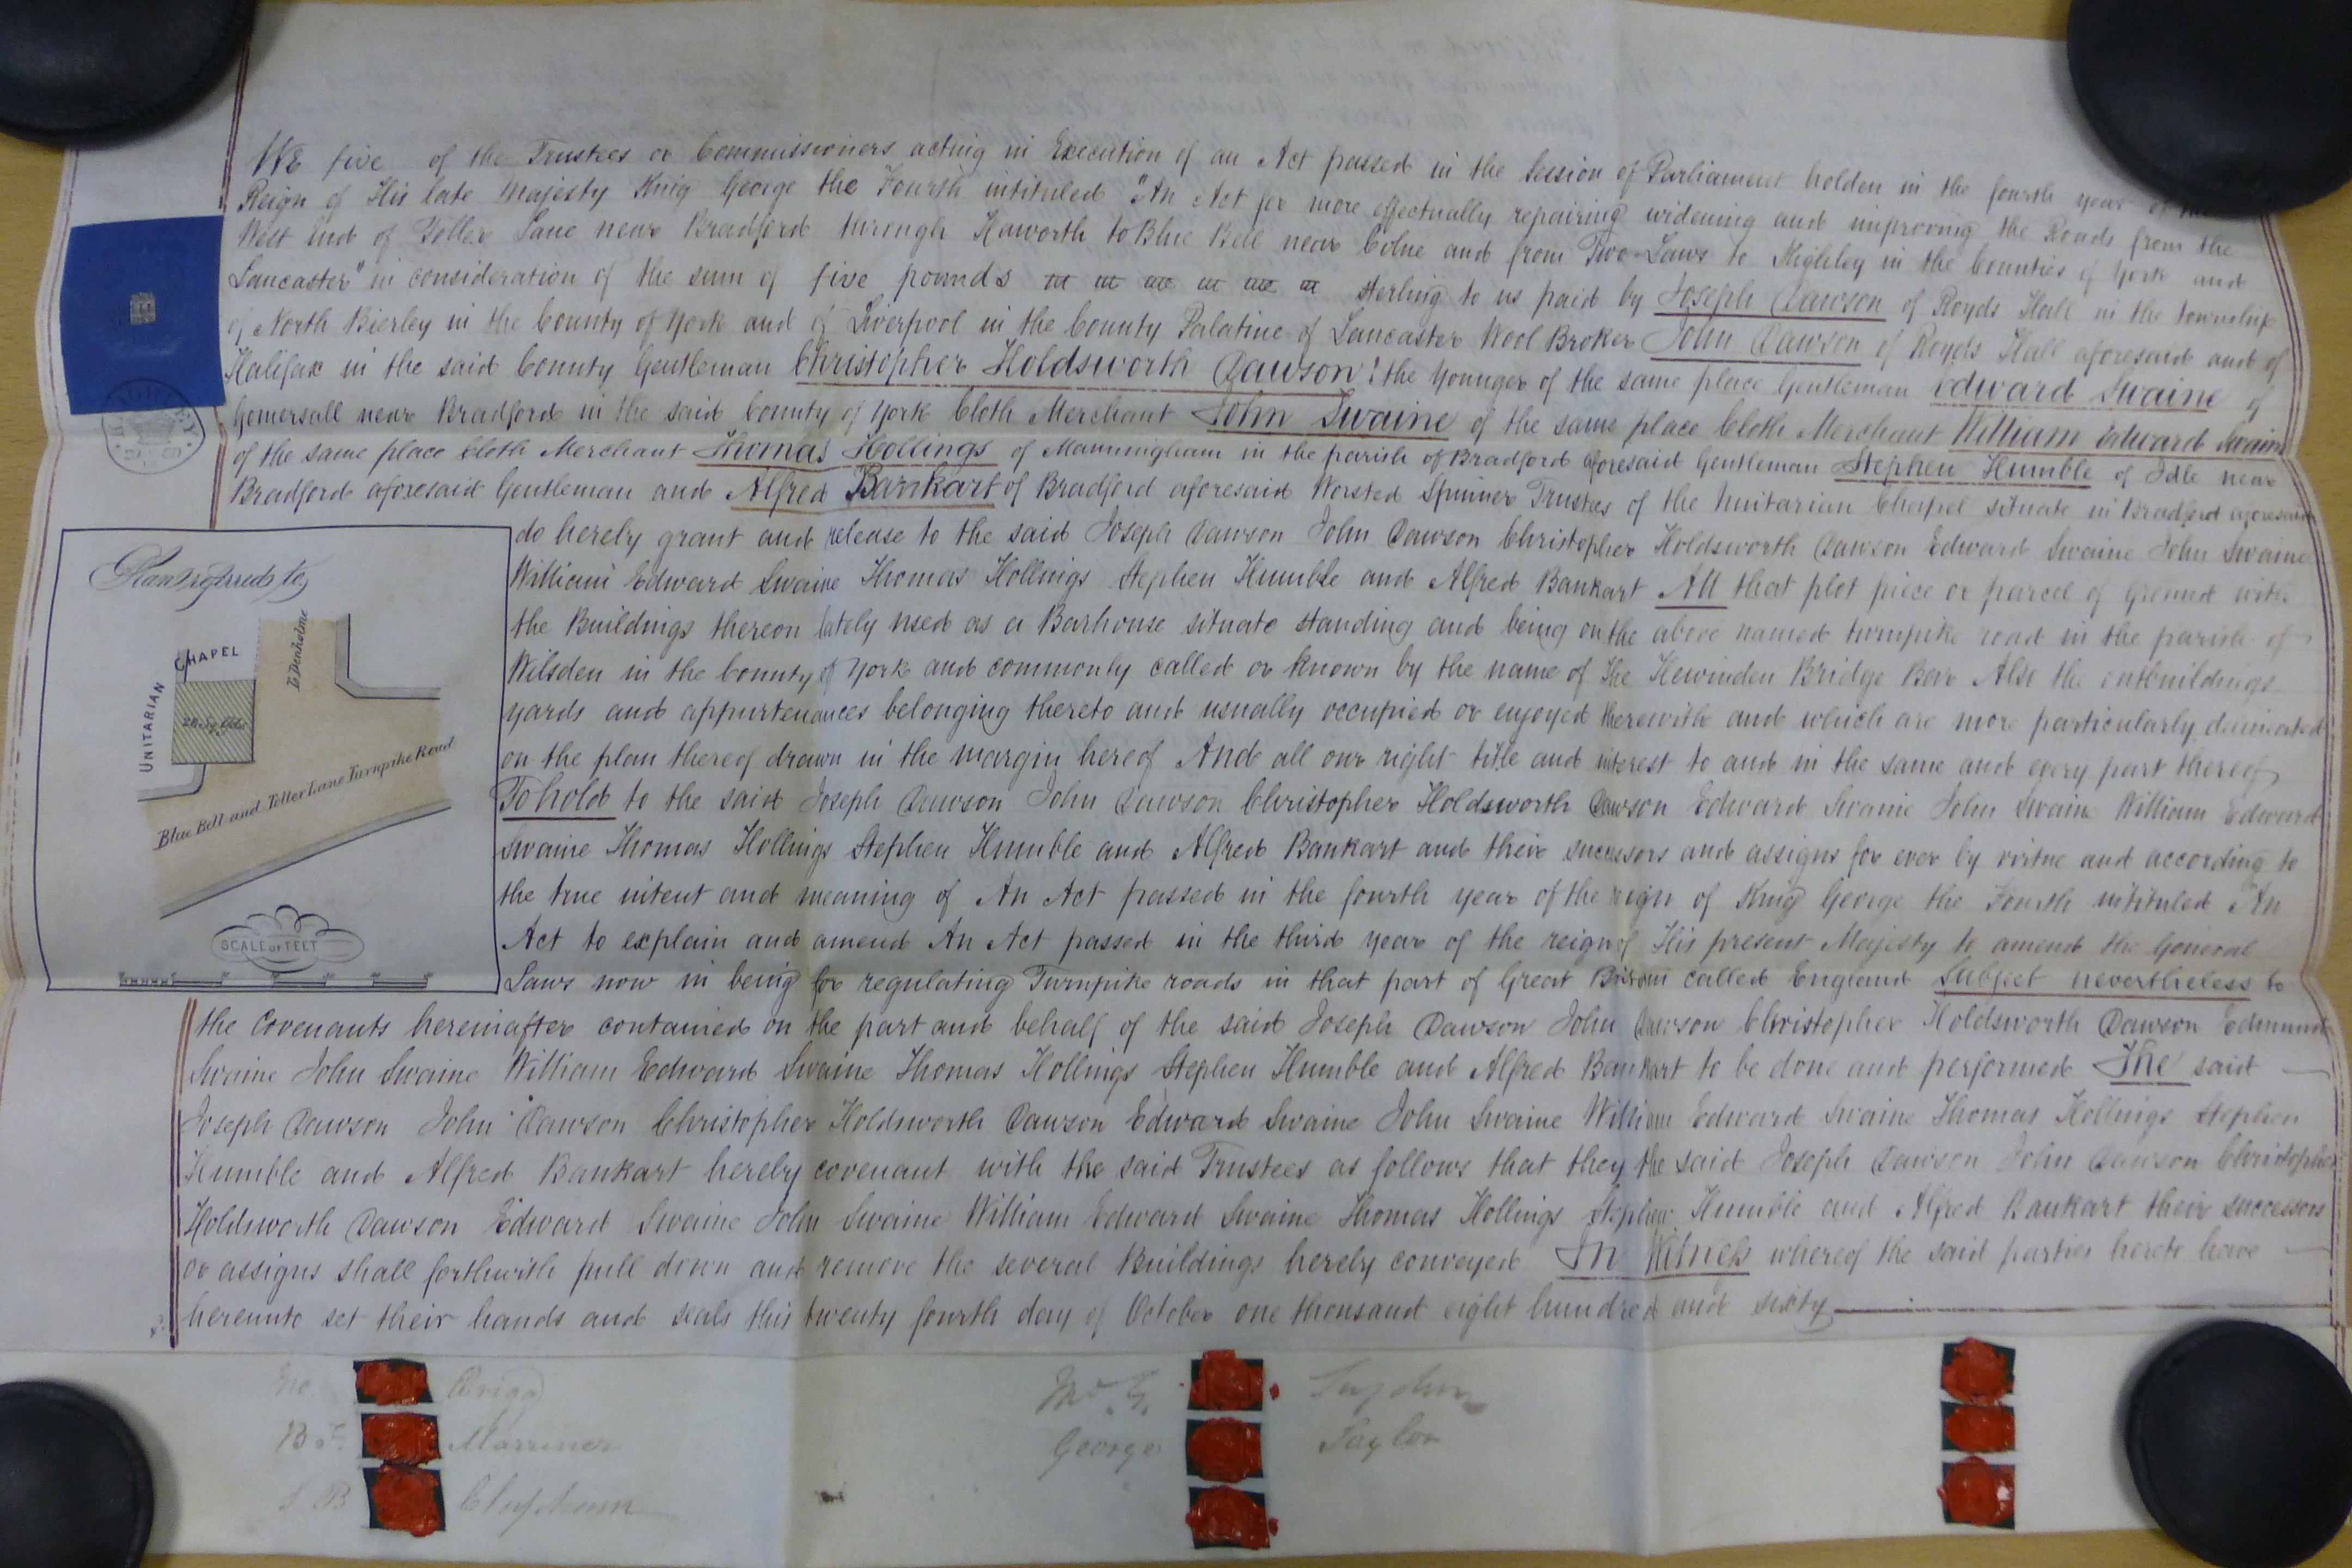 WE five of the Trustees or Commissioners acting in Execution of an Act passed in the Session of Parliament holden in the fourth year of the
Reign of His late Majesty King George the Fourth intituled "An Act for more effectually repairing widening and improving the Roads from the
West End of Toller Lane near Bradford through Haworth to Blue Bell near Colne and from Two-Laws to Kighley in the Counties of York and
Lancaster" in consideration of the sum of five pounds sterling to us paid by Joseph Dawson of Royds Hall in the township
of North Bierley in the County of York and of Liverpool in the County Palatine of Lancaster Wool Broker John Dawson of Royds Hall aforesaid and of
Halifax in the said County Gentleman Christopher Holdsworth Dawson the Younger of the same place Gentleman Edward Swaine of
Gomersall near Bradford in the said County of York Cloth Merchant John Swaine of the same place Cloth Merchant William Edward Swaine
of the same place Cloth Merchant Thomas Hollings of Manningham in the parish of Bradford aforesaid Gentleman Stephen Humble of Idle near
Bradford aforesaid Gentleman and Alfred Bankart of Bradford aforesaid Worsted Spinner Trustees of the Unitarian Chapel situate in Bradford aforesaid
do hereby grant and release to the said Joseph Dawson John Dawson Christopher Holdsworth Dawson Edward Swaine John Swaine
William Edward Swaine Thomas Hollings Stephen Humble and Alfred Bankart All that plot piece or parcel of Ground with
the Buildings thereon lately used as a Barhouse situate standing and being on the above named turnpike road in the parish of
Wilsden in the County of York and commonly called or known by the name of The Hewinden Bridge Bar Also the outbuildings
yards and appurtenances belonging thereto and usually occupied or enjoyed therewith and which are more particularly delineated
on the plan thereof drawn in the margin hereof And all our right title and interest to and in the same and every part thereof
To hold to the said Joseph Dawson John Dawson Christopher Holdsworth Dawson Edward Swaine John Swaine William Edward
Swaine Thomas Hollings Stephen Humble and Alfred Bankart and their successors and assigns for ever by virtue and according to
the true intent and meaning of An Act passed in the fourth year of the reign of King George the Fourth intituled An
Act to explain and amend An Act passed in the third year of the reign of His present Majesty to amend the General
Laws now in being for regulating Turnpike roads in that part of Great Britain called England Subject nevertheless to
the Covenants hereinafter contained on the part and behalf of the said Joseph Dawson John Dawson Christopher Holdsworth Dawson Edmund
Swaine John Swaine William Edward Swaine Thomas Hollings Stephen Humble and Alfred Bankart to be done and performed The said
Joseph Dawson John Dawson Christopher Holdsworth Dawson Edward Swaine John Swaine William Edward Swaine Thomas Hollings Stephen
Humble and Alfred Bankart hereby covenant with the said Trustees as follows that they the said Joseph Dawson John Dawson Christopher
Holdsworth Dawson Edward Swaine John Swaine William Edward Swaine Thomas Hollings Stephen Humble and Alfred Bankart their successors
or assigns shall forthwith pull down and remove the several Buildings hereby conveyed In Witness whereof the said parties hereto have
hereunto set their hands and seals this twenty fourth day of October one thousand eight hundred and sixty
Plan referred to
UNITARIAN CHAPEL
To Denholme
Blue Bell and Toller Lane Turnpike Road
SCALE OF FEET
Jno. Brigg
B F. Marriner
J. B Clapham
Wm G. Sugden
George Taylor